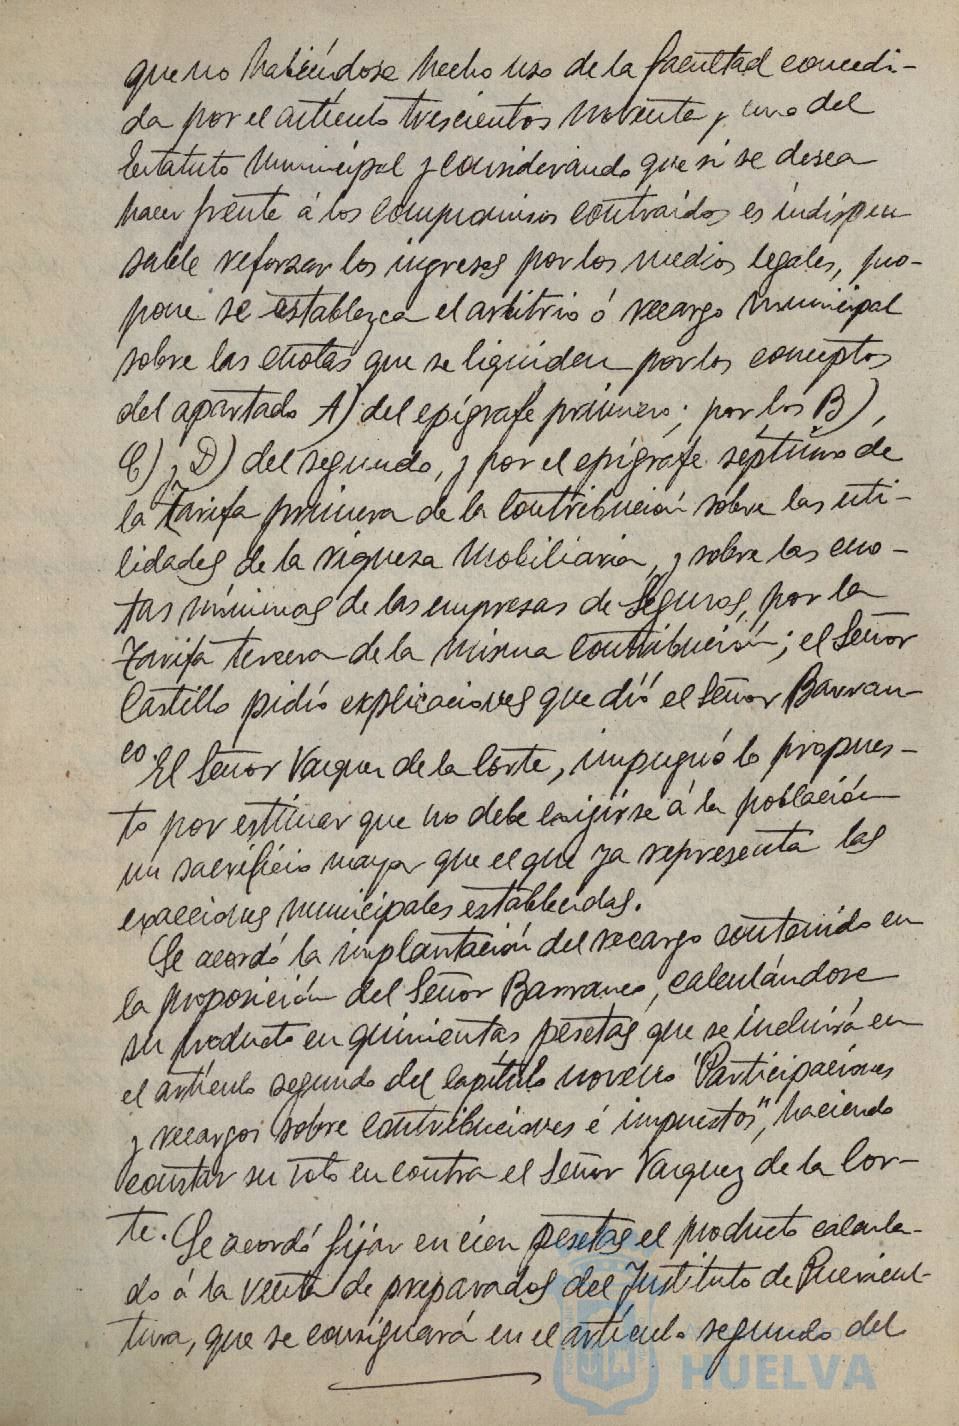 que no habiéndose hecho uso de la facultad concedi-
da por el artículo trescientos noventa y uno del
Estatuto Municipal y considerando que si se desea
hacer frente á los compromisos contraídos es indispen
sable reforzar los ingresos por los medios legales, pro-
pone se establezca el arbitrio ó recargo Municipal
sobre las cuotas que se liquiden por los conceptos
del apartado A) del epígrafe primero; por los B),
C) y D) del segundo, y por el epígrafe septimo de
la Tarifa primera de la Contribución sobre las uti-
lidades de la riqueza Mobiliaria, y sobre las cuo-
tas mínimas de las empresas de Seguros, por la
Tarifa tercera de la misma contribución; el Señor
Castillo pidió explicaciones que dió el Señor Barran-
co. El Señor Vazquez de la Corte, impugnó lo propues-
to por estimar que no debe exigirse á la población
un sacrificio mayor que el que ya representa las
exacciones Municipales establecidas.
Se acordó la implantación del recargo contenido en
la proposición del Señor Barranco, calculándose
su producto en quinientas pesetas que se incluirá en
el artículo segundo del Capítulo noveno "Participaciones
y recargos sobre contribuciones é impuestos", haciendo
constar su voto en contra el Señor Vazquez de la Cor-
te. Se acordó fijar en cien pesetas el producto calcula-
do á la venta de preparados del Instituto de Puericul-
tura, que se consignará en el artículo segundo del
HUELVA